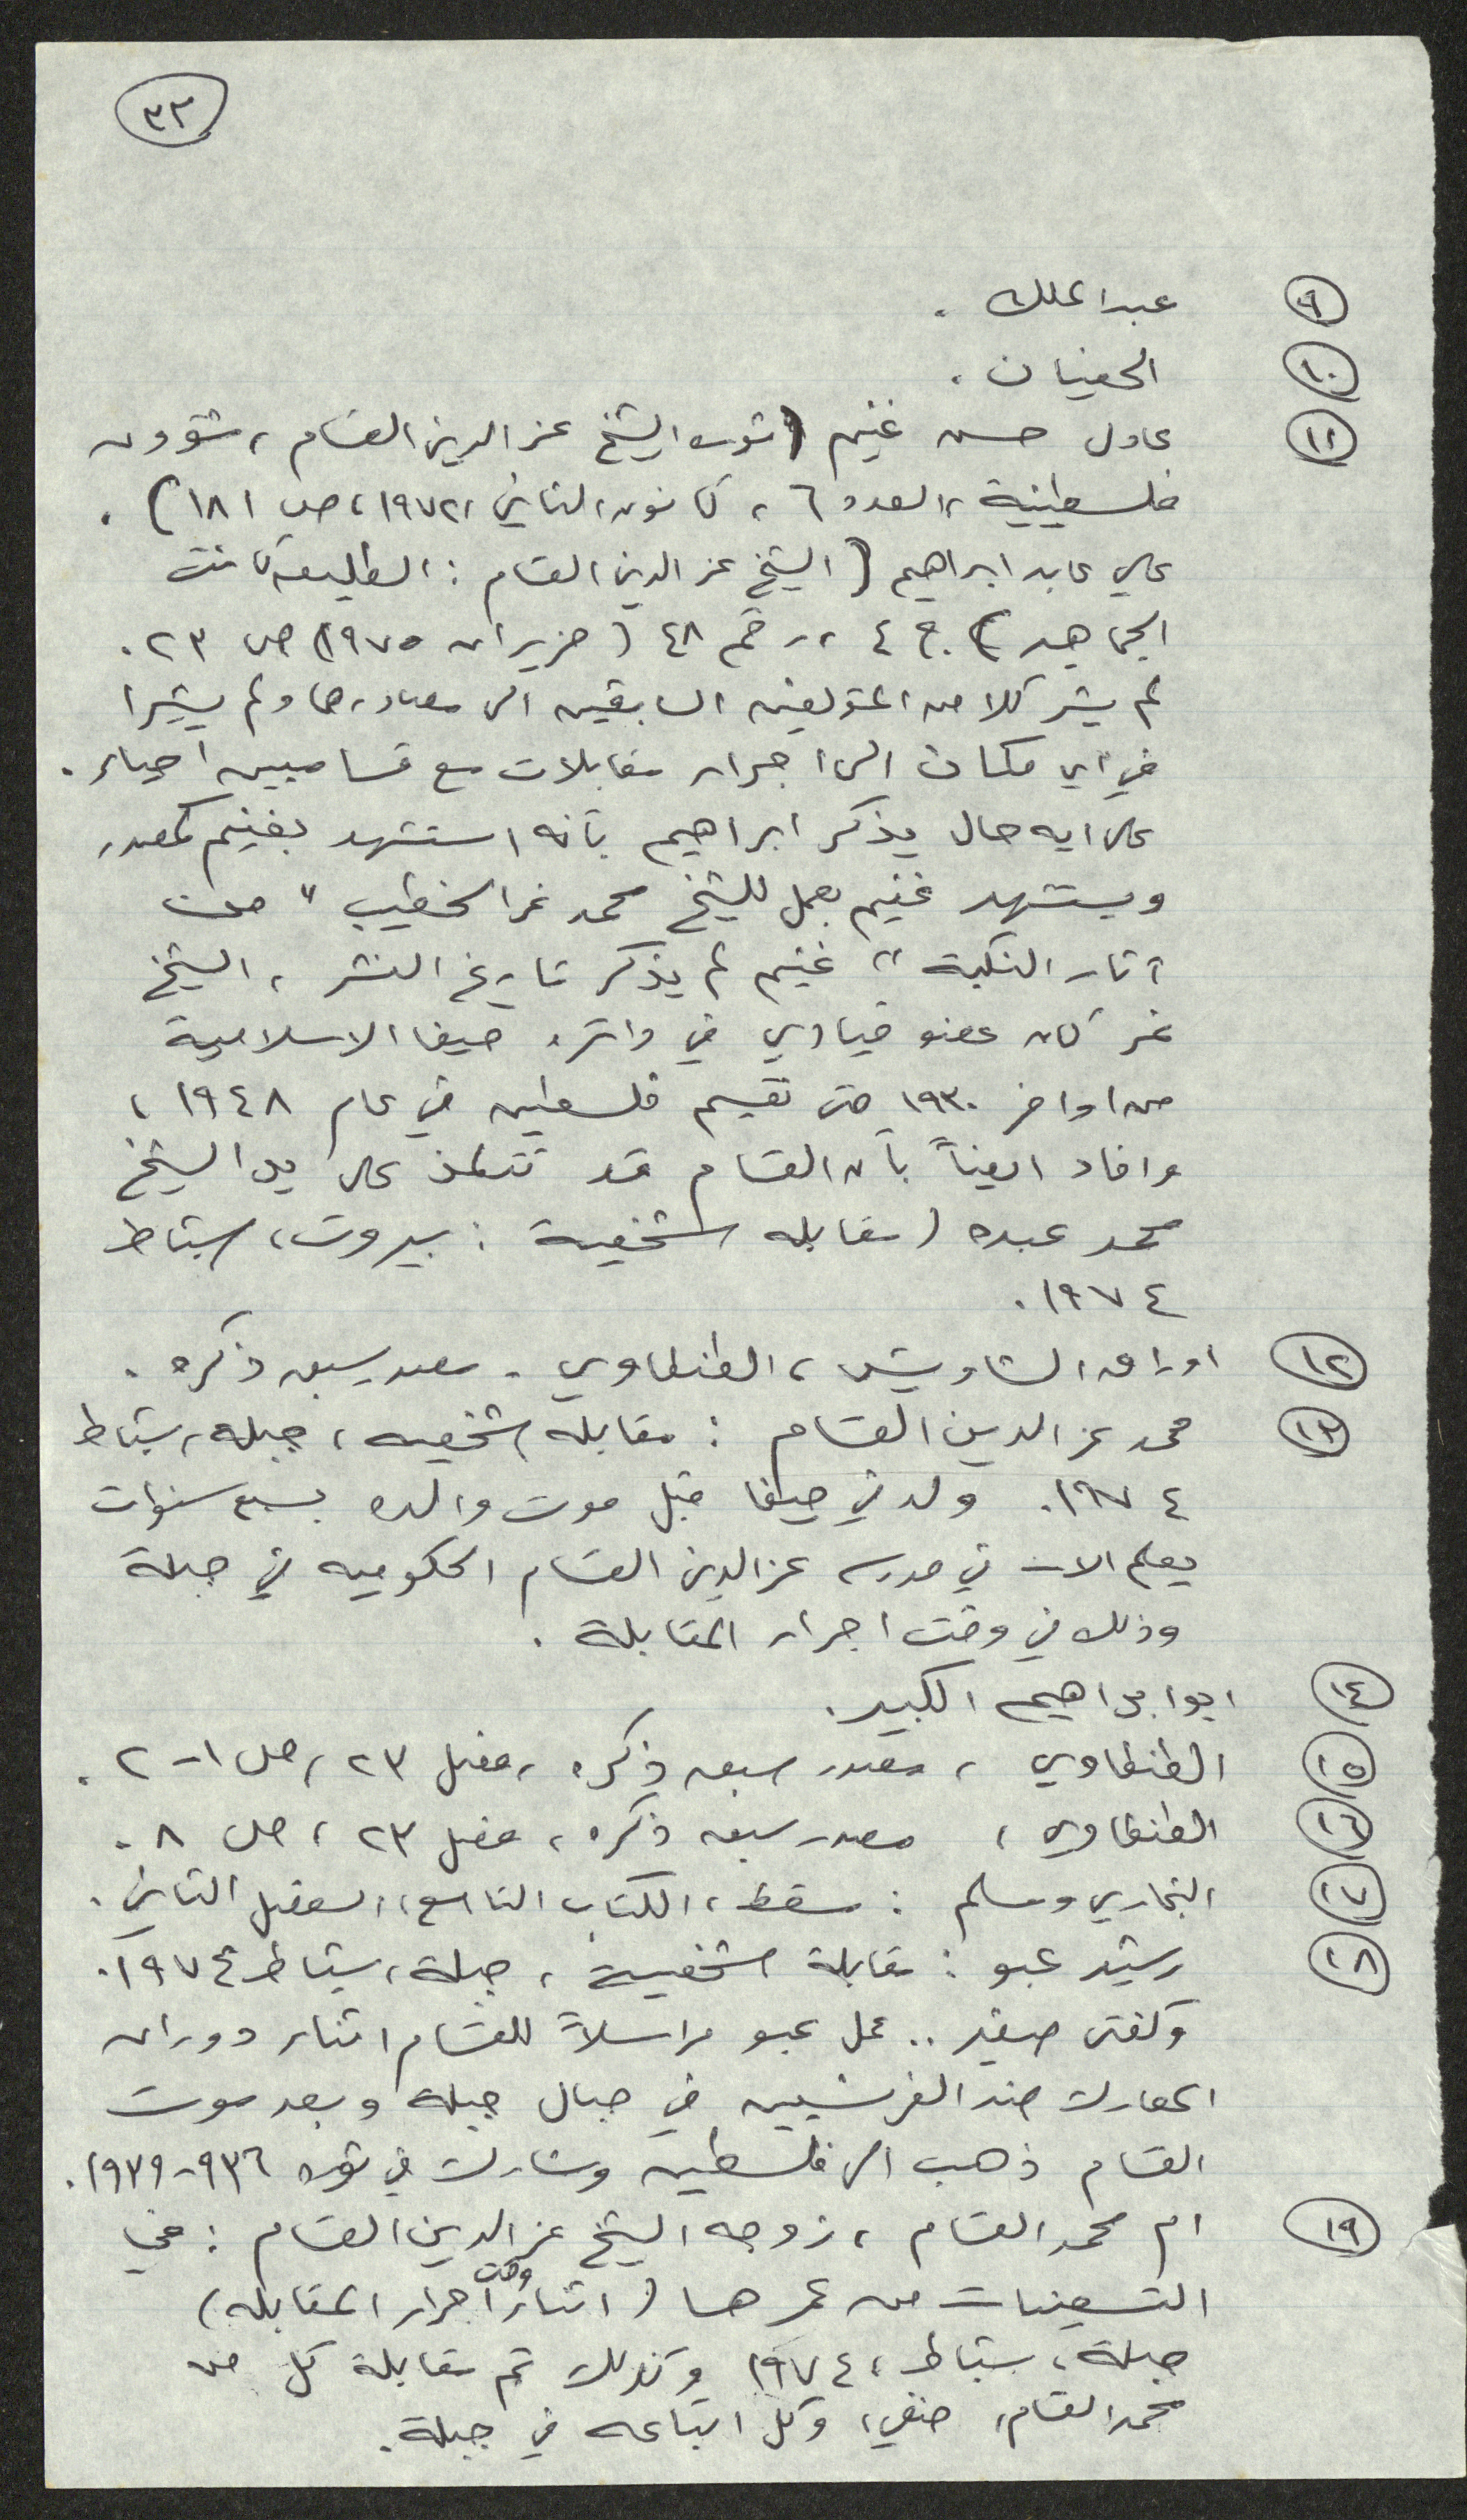 ٣٢
٩ عبد الملك .
١٠ الحفيان .
١١ عادل حسن غنيم (ثورة الشيخ عز الدين القسام ، شؤون
فلسطينية ، العدد ٦ ، كانون الثاني ، ١٩٧٢ ، ص ١٨١) .
علي عابد ابراهيم (الشيخ عز الدين القسام : الطليعة كانت
الجماهير) ج ٤ ، رقم ٤٨ (حزيران ١٩٧٥) ص ٢٣ .
لم يشر كلا من المؤلفين السابقين الى مصادرهما ولم يشيرا
في اي مكان الى اجراء مقابلات مع قساميين احياء .
على ايه حال يذكر ابراهيم بأنه استشهد بغنيم كمصدر
ويستشهد غنيم بعمل للشيخ محمد نمر الخطيب " من
آثار النكبة " غنيم لم يذكر تاريخ النشر ، الشيخ
نمر كان عضو قيادي في دائرة حيفا الاسلامية
من اواخر ١٩٣٠ حتى تقسيم فلسطين في عام ١٩٤٨ ،
وافاد ايضاً بأن القسام قد تتلمذ على يد الشيخ
محمد عبده (مقابله شخصية : بيروت ، شباط
١٩٧٤ .
١٢ اوراق الشاويش ، الطنطاوي . مصدر سبق ذكره .
١٣ محمد عز الدين القسام : مقابله شخصيه ، جبله ، شباط
١٩٧٤ . ولد في حيفا قبل موت والده بسبع سنوات
يعلم الان في مدرسه عز الدين القسام الحكوميه في جبلة
وذلك في وقت اجراء المقابلة .
١٤ ابو ابراهيم الكبير .
١٥ الطنطاوي ، مصدر سبق ذكره ، فصل ٢٣ ، ص ١-٢ .
١٦ الطنطاوي ، مصدر سبق ذكره ، فصل ٢٣ ، ص ٨ .
١٧ البخاري ومسلم : سقط ، الكتاب التاسع ، الفصل الثاني .
١٨ رشيد عبو : مقابلة شخصية ، جبلة ، شباط ١٩٧٤ .
وكفتى صغير .. عمل عبو مراسلاً للقسام اثناء دوران
المعارك ضد الفرنسيين في جبال جبلة وبعد موت
القسام ذهب الى فلسطين وشارك في ثورة ٩٣٦-١٩٣٩ .
١٩ ام محمد القسام ، زوجه الشيخ عز الدين القسام : في
التسعينات من عمرها (اثناء وقت اجراء المقابله)
جبلة ، شباط ، ١٩٧٤ وكذلك تم مقابلة كل من
محمد القسام ، حنفي ، وكل اتباعه في جبلة .